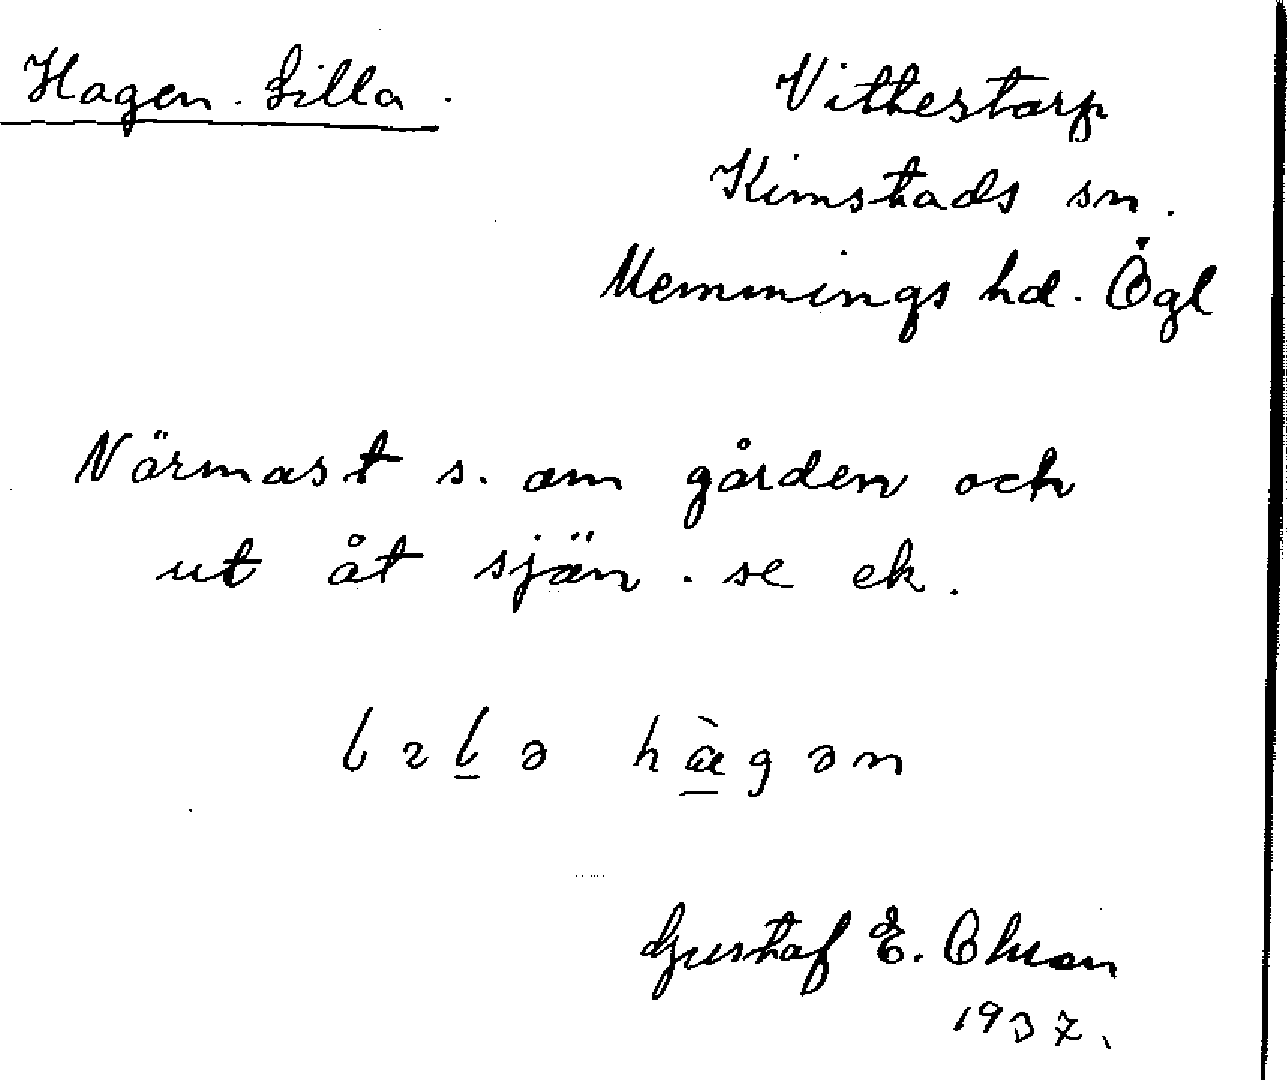 Hagen. Lilla.
Vittestorp
Kimstads sn.
Memmings hd. Ögl
Närmast s. om gården och
ut åt sjön. se ek.
lɩlə hàgən
Gustaf E. Olsson
1937.